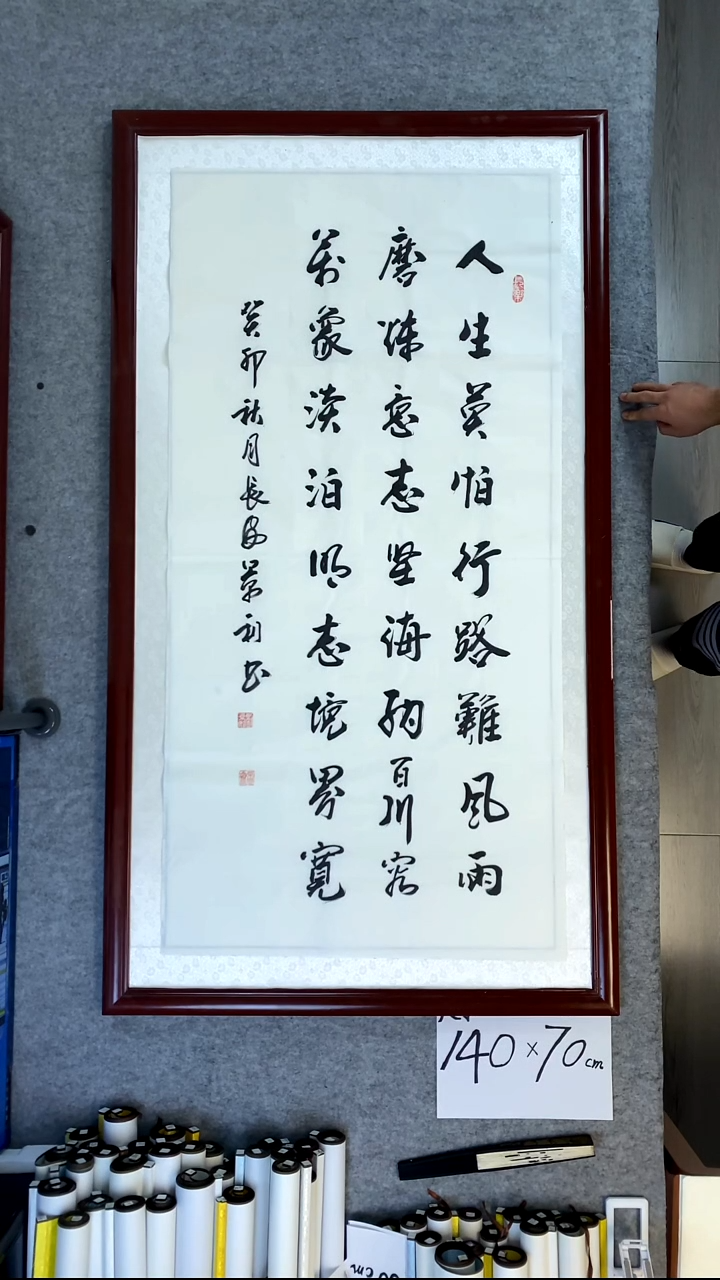 人生莫怕行路難風雨
磨煉意志坚海納百川容
萬象淡泊明志境界寬
癸卯秋月長安景利书
140×70cm
cm